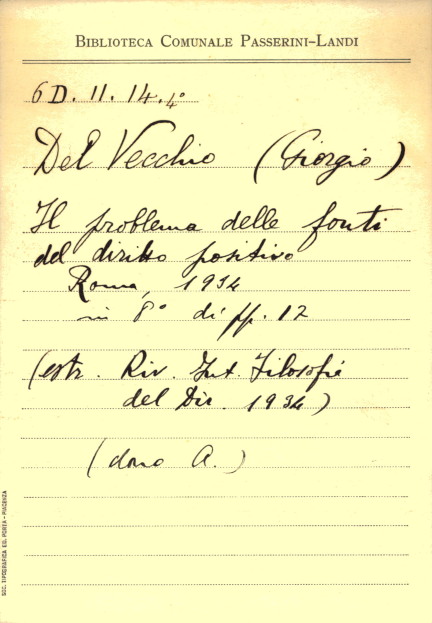 BIBLIOTECA COMUNALE PASSERINI-LANDI
6 D. 11. 14. 4°
Del Vecchio (Giorgio)
Il problema delle fonti
del diritto positivo
Roma, 1934
in 8° di pp. 12
(estr. Riv. Int. Filosofia
del Dir. 1934)
(dono A.)
SOC. TIPOGRAFICA ED. PORTA - PIACENZA